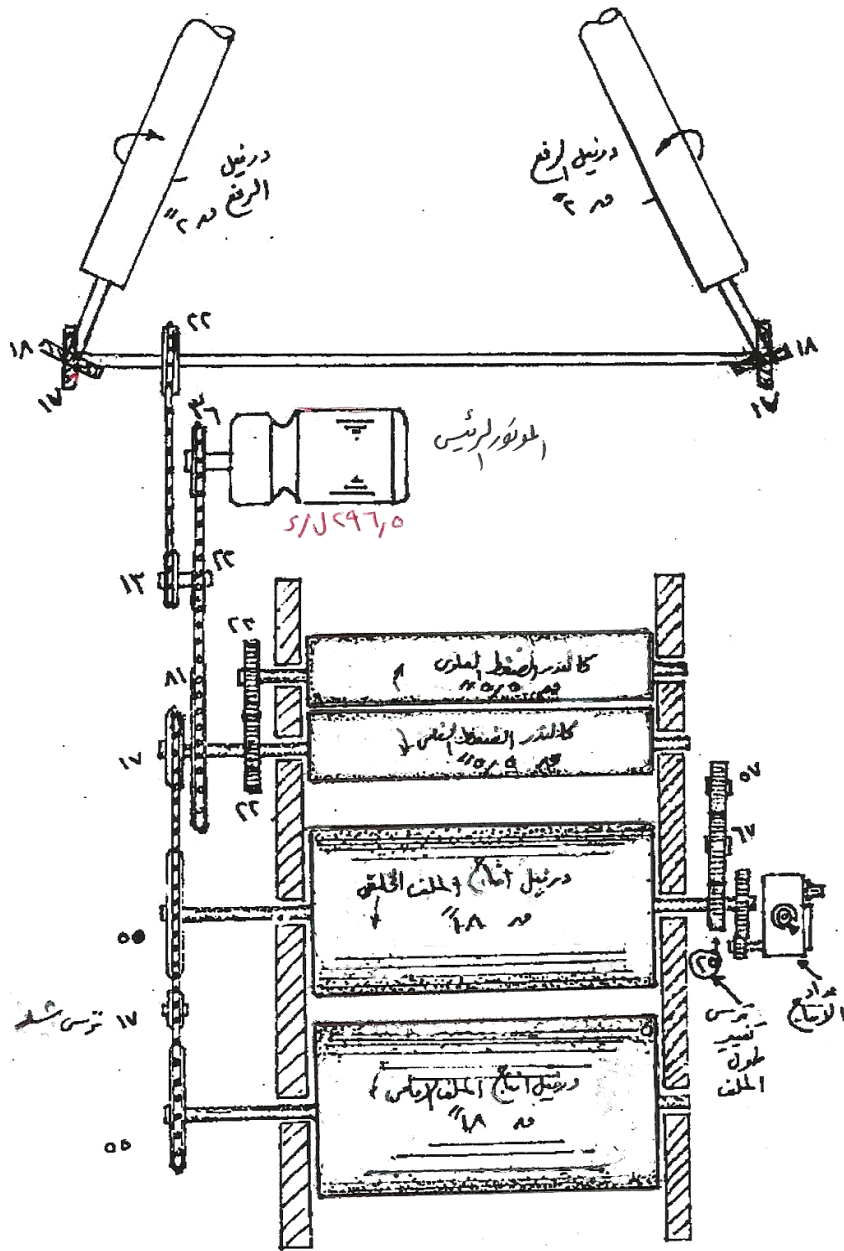 درفيل
الرفع
قد ٢"
درفيل الرفع
قد ٢"
٢٢
١٨
١٧
١٨
١٧
٣٦
الموتور الرئيسي
٢٩٦,٥ ل/د
١٣
٢٣
٢٣
كالندر الضغط العلوى
قد ٥,٥"
٨١
كالندر الضغط السفلى
قد ٥,٥"
١٧
٢٢
٥٧
٦٧
درفيل انتاج الملف الخلفى
قد ١٨"
٥٥
٢٥
عداد
الانتاج
ترس
تغيير
طول
الملف
١٧ ترس شد
درفيل انتاج الملف الامامى
قد ١٨"
٥٥